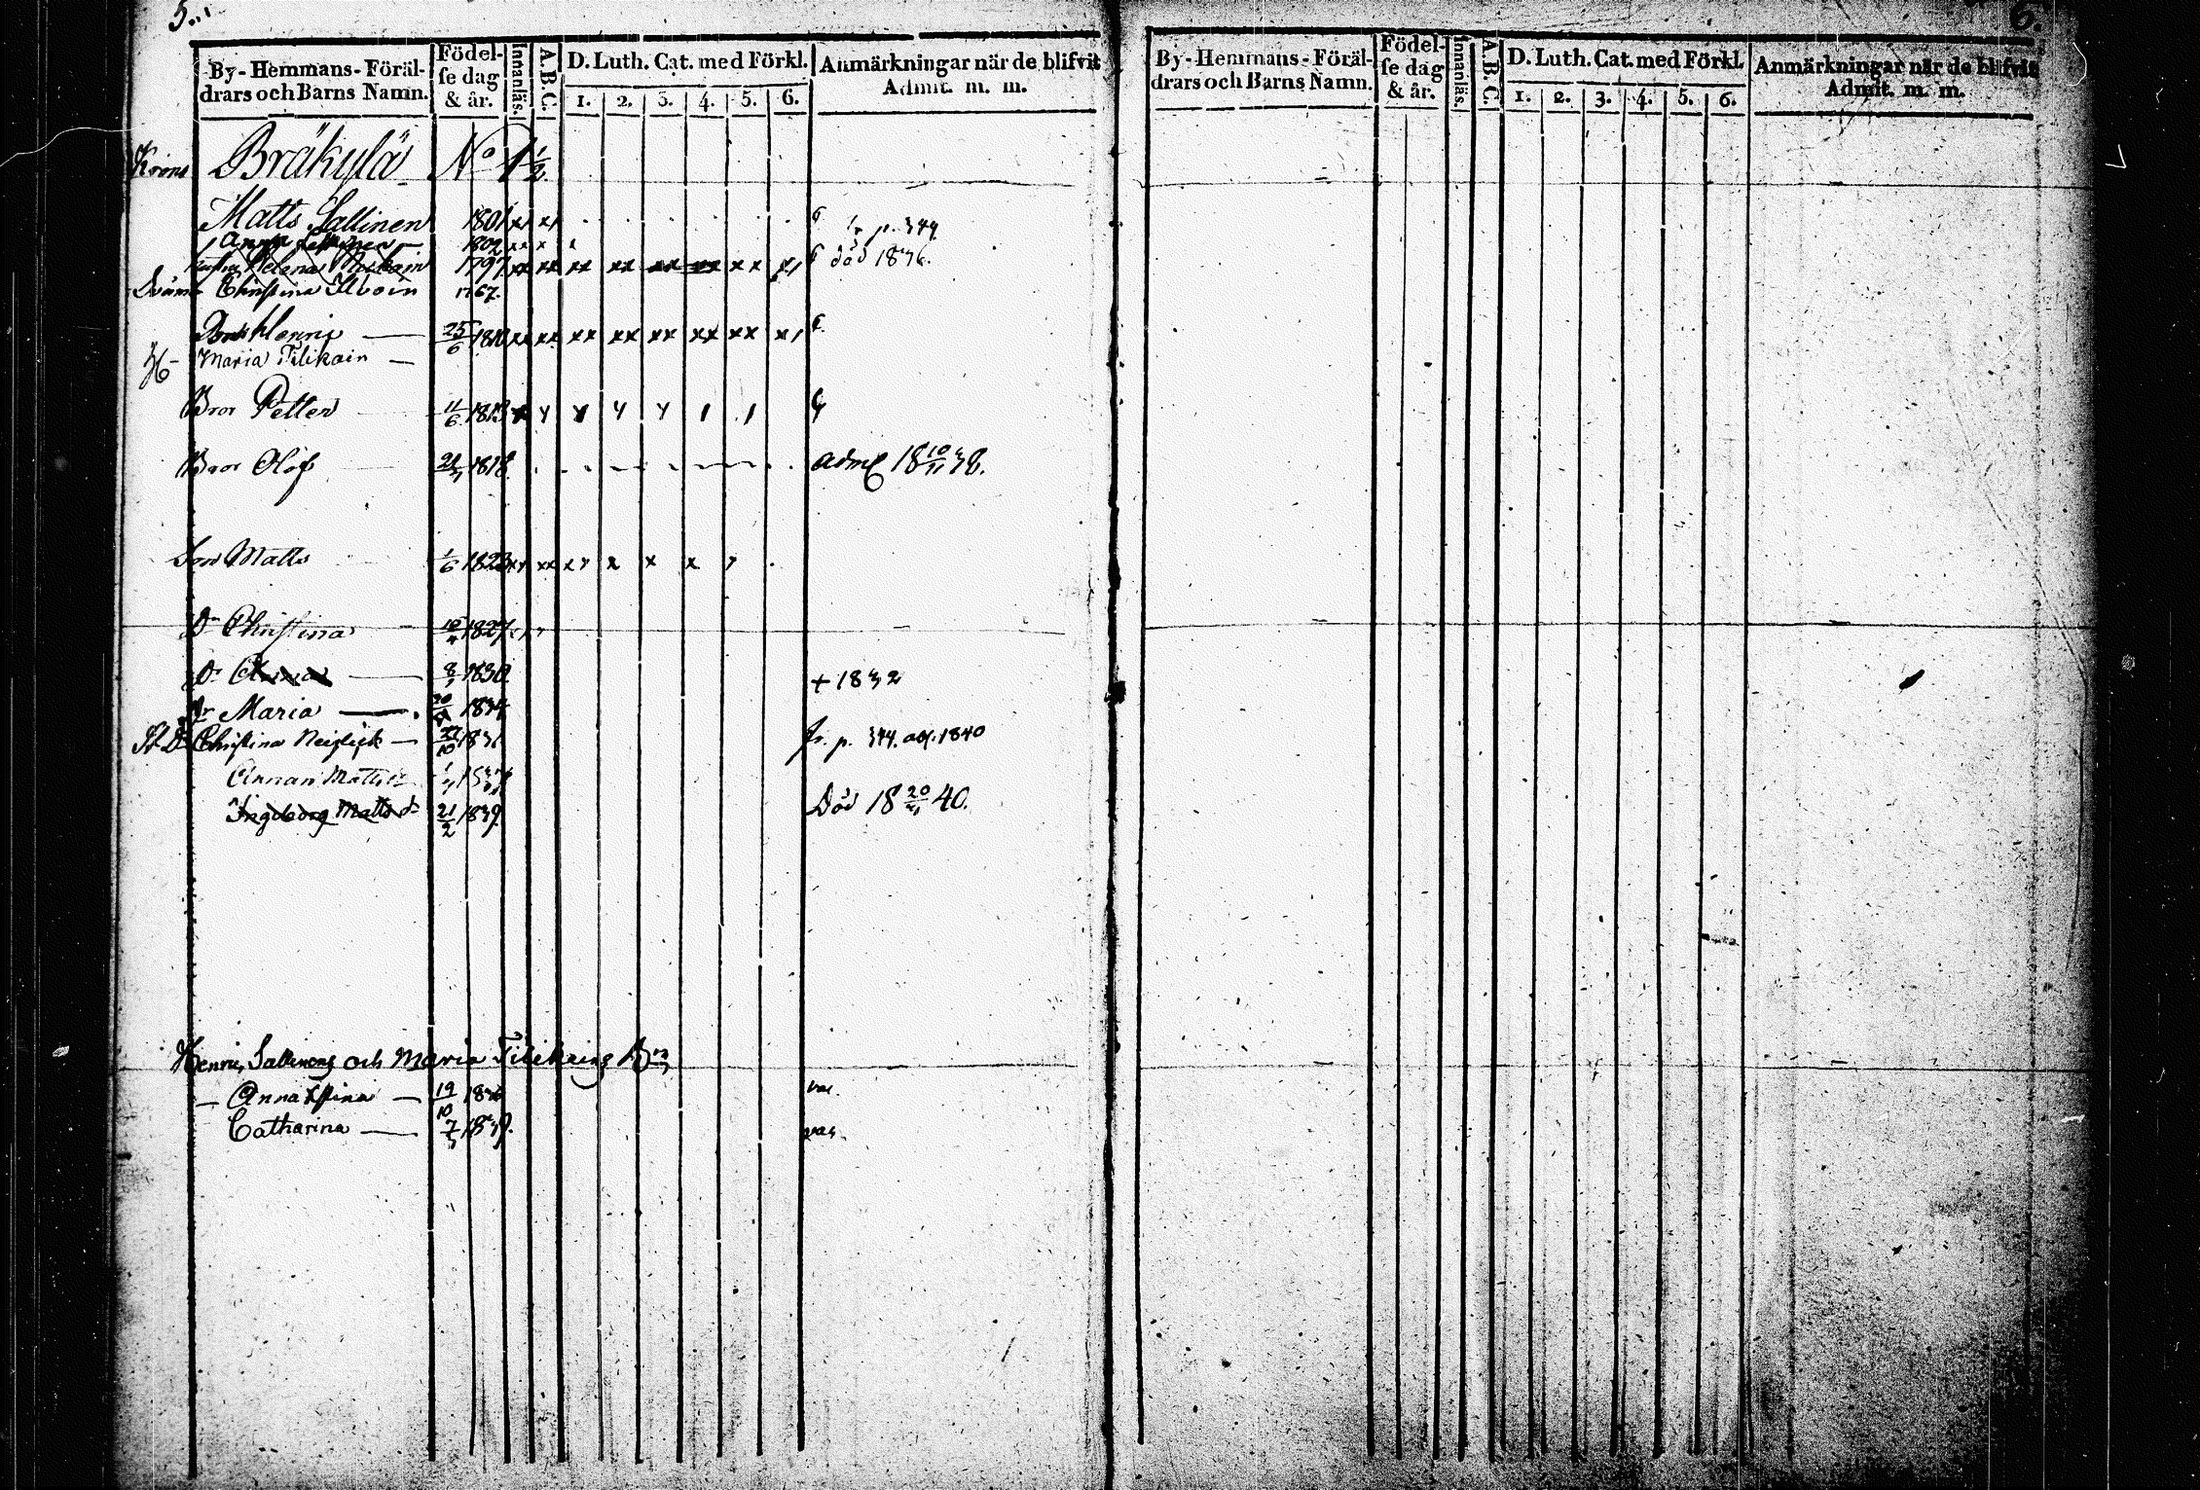 5.
By-Hemmans-Föräl-
drars och Barns Namn.
Födel-
se dag
& år.
Innanläs.
A.B.C.
D. Luth. Cat. med Förkl.
1. 2. 3. 4. 5. 6.
Anmärkningar när de blifvit
Admit. m. m.
Krono Bräkylä No 1 1/2
Matts Sallinen 1801 fr p. 344
Anna 1802
Helena 1797 död 1836.
Christina Ilvoin 1767.
Henric 25/6 1810
H- Maria Tilikain
Bror Petter 11/6 1813
Bror Olof 1818 adm 18 10/11 38.
Son Matts 1/6 1823
Dr Christina 1827
Dr Anna 1830 + 1832
Dr Maria 1834
Christina Neiglick 10 1831 fr. p. 344. 1840
Annan Matts
Ingeborg Matts dr 21/2 1839 Död 18 20/ 40.
Henric Sallinens och Maria Tilikains Brn
Anna Stina 19/10 1836 vac.
Catharina 7/ 1839. vac.
6.
By-Hemmans-Föräl-
drars och Barns Namn.
Födel-
se dag
& år.
Innanläs.
A.B.C.
D. Luth. Cat. med Förkl.
1. 2. 3. 4. 5. 6.
Anmärkningar när de blifvit
Admit. m. m.